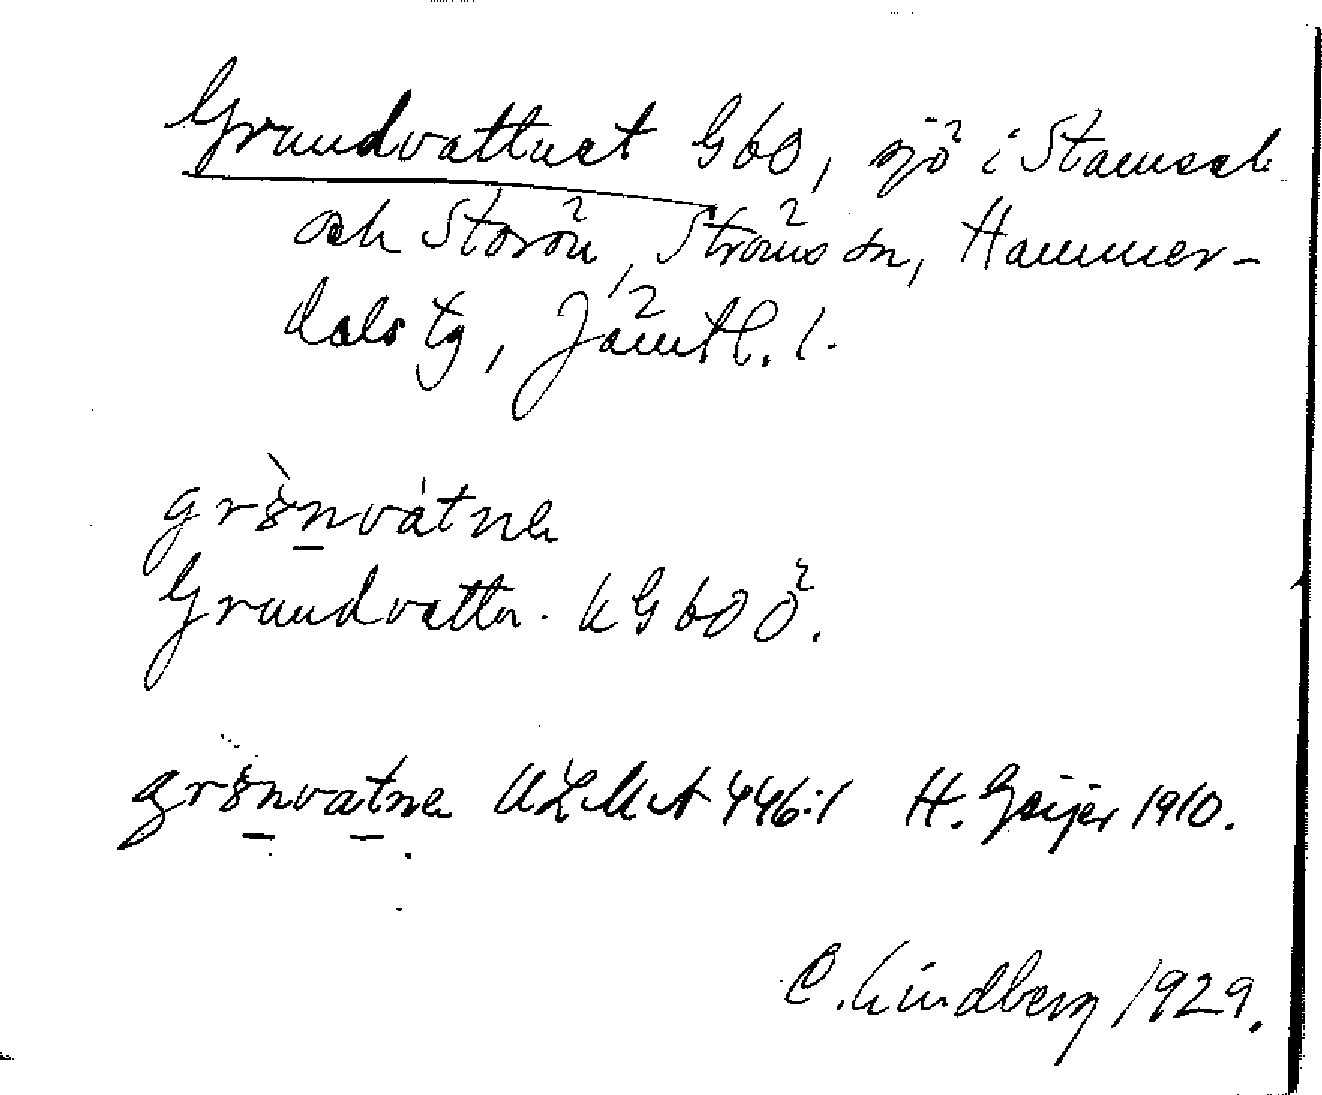 Grundvattnet GbO, sjö i Stamsele
och Storön, Ströms sn, Hammer-
dals tg, Jämtl. l.
grȣ̀nvátnɐ
Grundvattn. KGbOÖ.
grȣnvatnɐ ULMA 446:1 H. Geijer 1910.
C. Lindberg 1929.